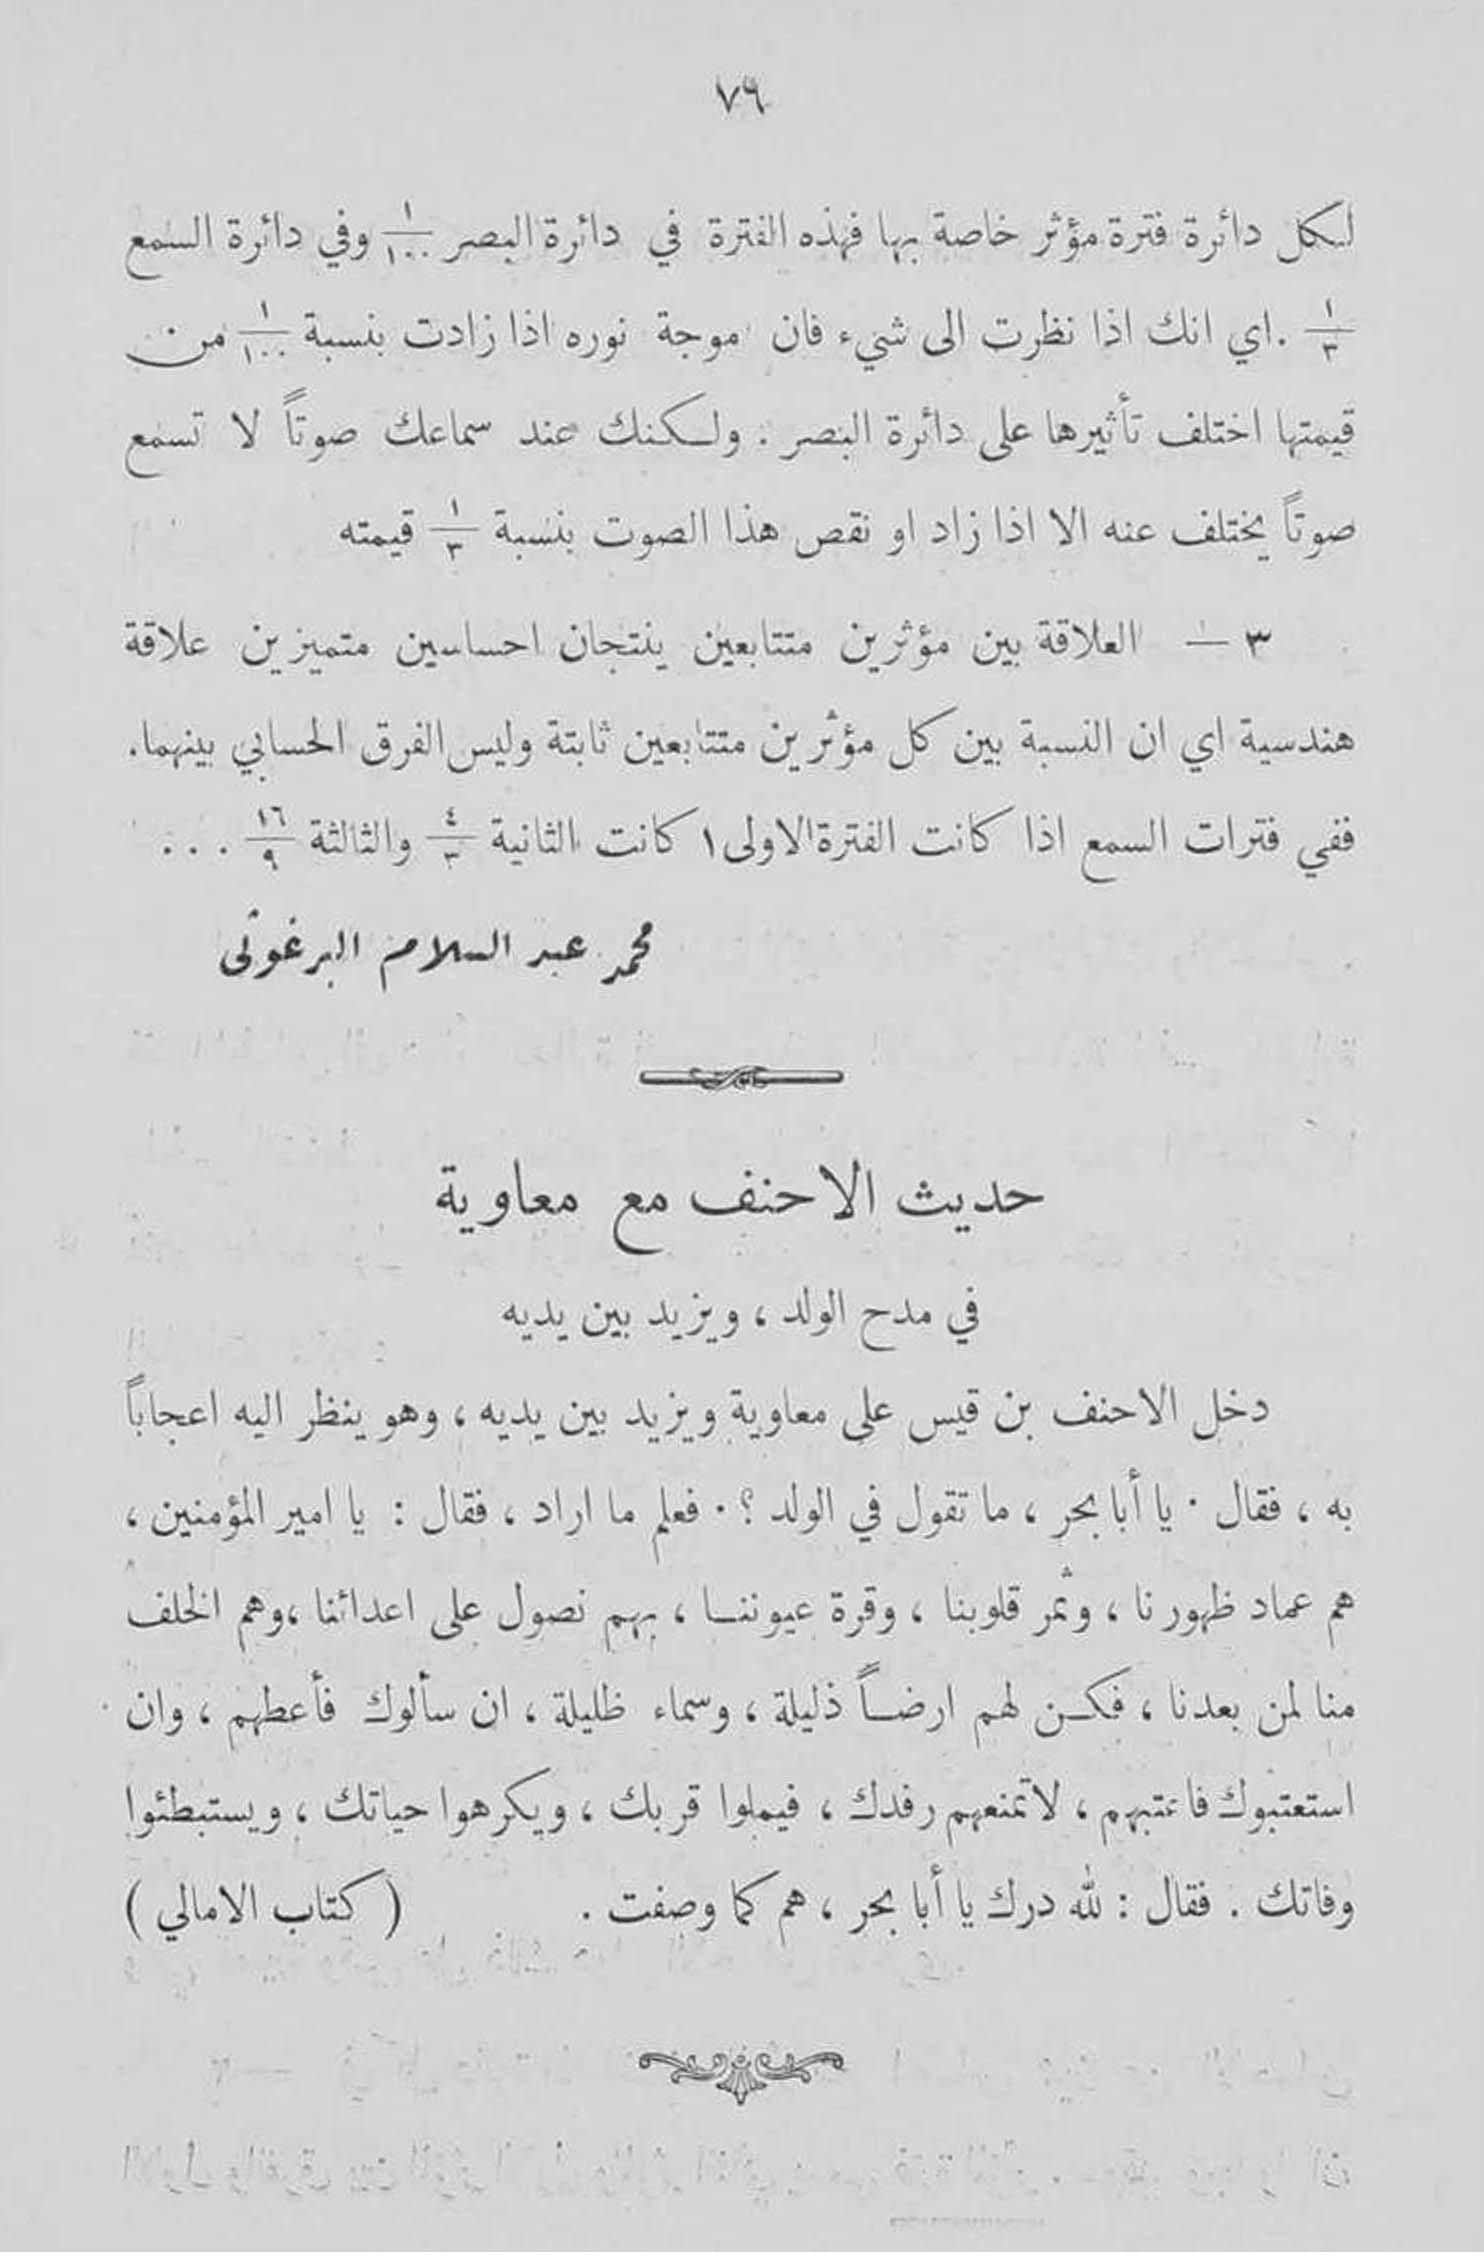 ٧٦
لكل دائرة فترة مؤثر خاصة بها فهذه الفترة في دائرة البصر ١/١٠٠ وفي دائرة السمع
١/٣ . اي انك اذا نظرت الى شيء فان موجة نوره اذا زادت بنسبة ١/١٠٠ من
قيمتها اختلف تأثيرها على دائرة البصر . ولكنك عند سماعك صوتاً لا تسمع
صوتاً يختلف عنه الا اذا زاد او نقص هذا الصوت بنسبة ١/٣ قيمته
٣ — العلاقة بين مؤثرين متتابعين ينتجان احساسين متميزين علاقة
هندسية اي ان النسبة بين كل مؤثرين متتابعين ثابتة وليس الفرق الحسابي بينهما .
ففي فترات السمع اذا كانت الفترة الاولى ١ كانت الثانية ٤/٣ والثالثة ١٦/٩ . . .
محمد عبد السلام البرغوثي
حديث الاحنف مع معاوية
في مدح الولد ، ويزيد بين يديه
دخل الاحنف بن قيس على معاوية ويزيد بين يديه ، وهو ينظر اليه اعجاباً
به ، فقال . يا أبا بحر ، ما تقول في الولد ؟ . فعلم ما اراد ، فقال : يا امير المؤمنين ،
هم عماد ظهورنا ، وثمر قلوبنا ، وقرة عيوننا ، بهم نصول على اعدائنا ، وهم الخلف
منا لمن بعدنا ، فكن لهم ارضاً ذليلة ، وسماء ظليلة ، ان سألوك فأعطهم ، وان
استعتبوك فاعتبهم ، لا تمنعهم رفدك ، فيملوا قربك ، ويكرهوا حياتك ، ويستبطئوا
وفاتك . فقال : لله درك يا أبا بحر ، هم كما وصفت . ( كتاب الامالي )